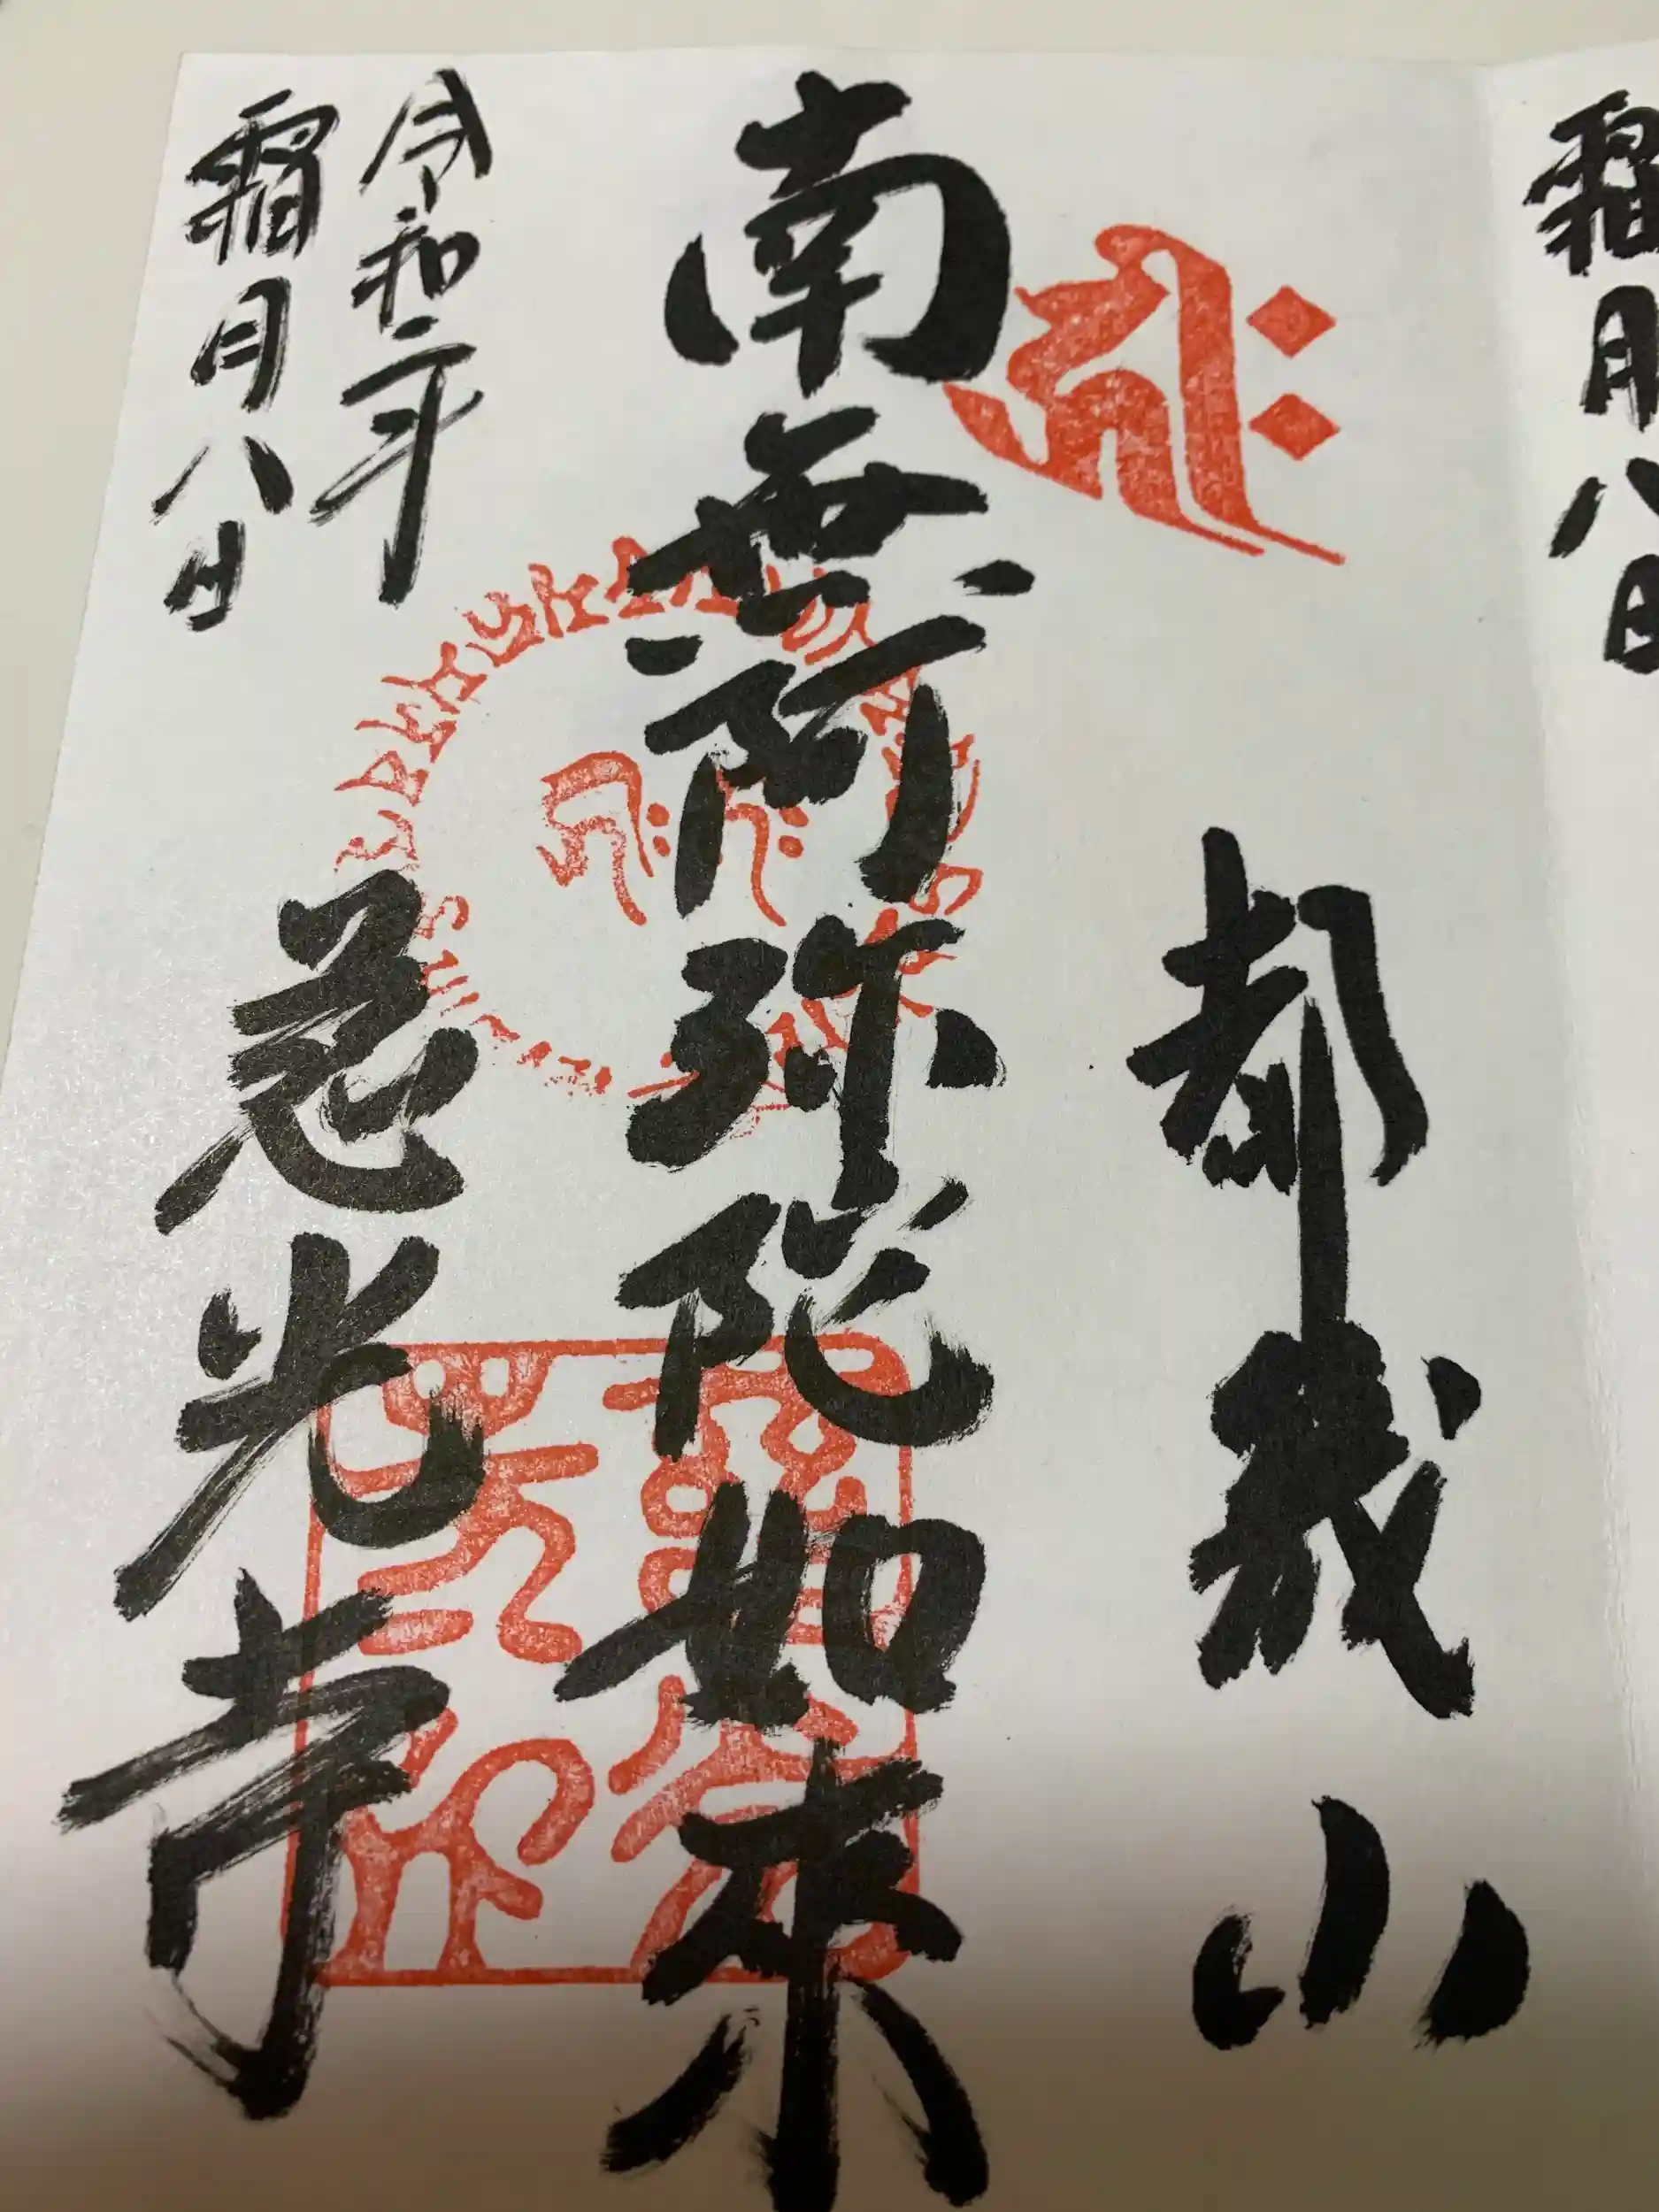 霜月八日
都幾山
南無阿弥陀如来
令和二年
霜月八日
慈光寺